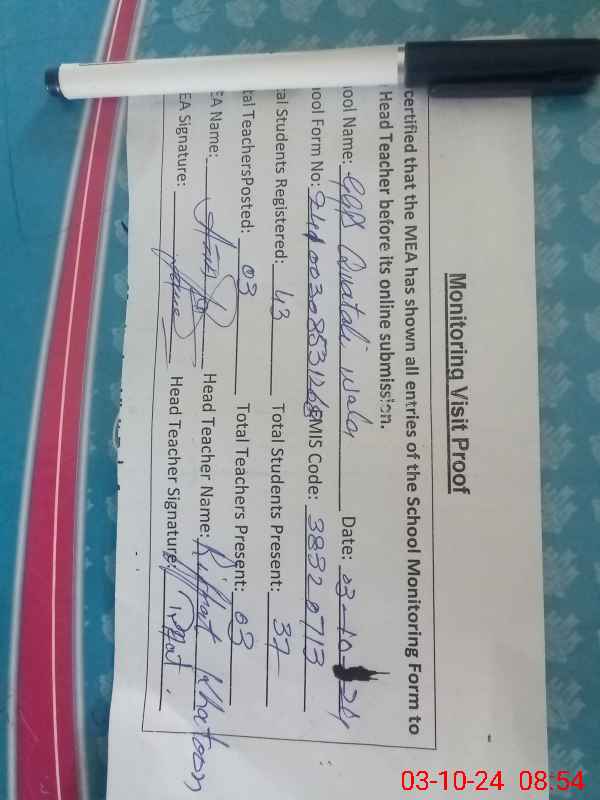 Monitoring Visit Proof
certified that the MEA has shown all entries of the School Monitoring Form to
Head Teacher before its online submission.
ool Name: GGPS Date: 03-10-24
ool Form No: EMIS Code: 38320713
al Students Registered: 43 Total Students Present: 37
tal TeachersPosted: 03 Total Teachers Present: 03
EA Name: Head Teacher Name: Riffat Khatoon
EA Signature: Head Teacher Signature: Riffat
03-10-24 08:54